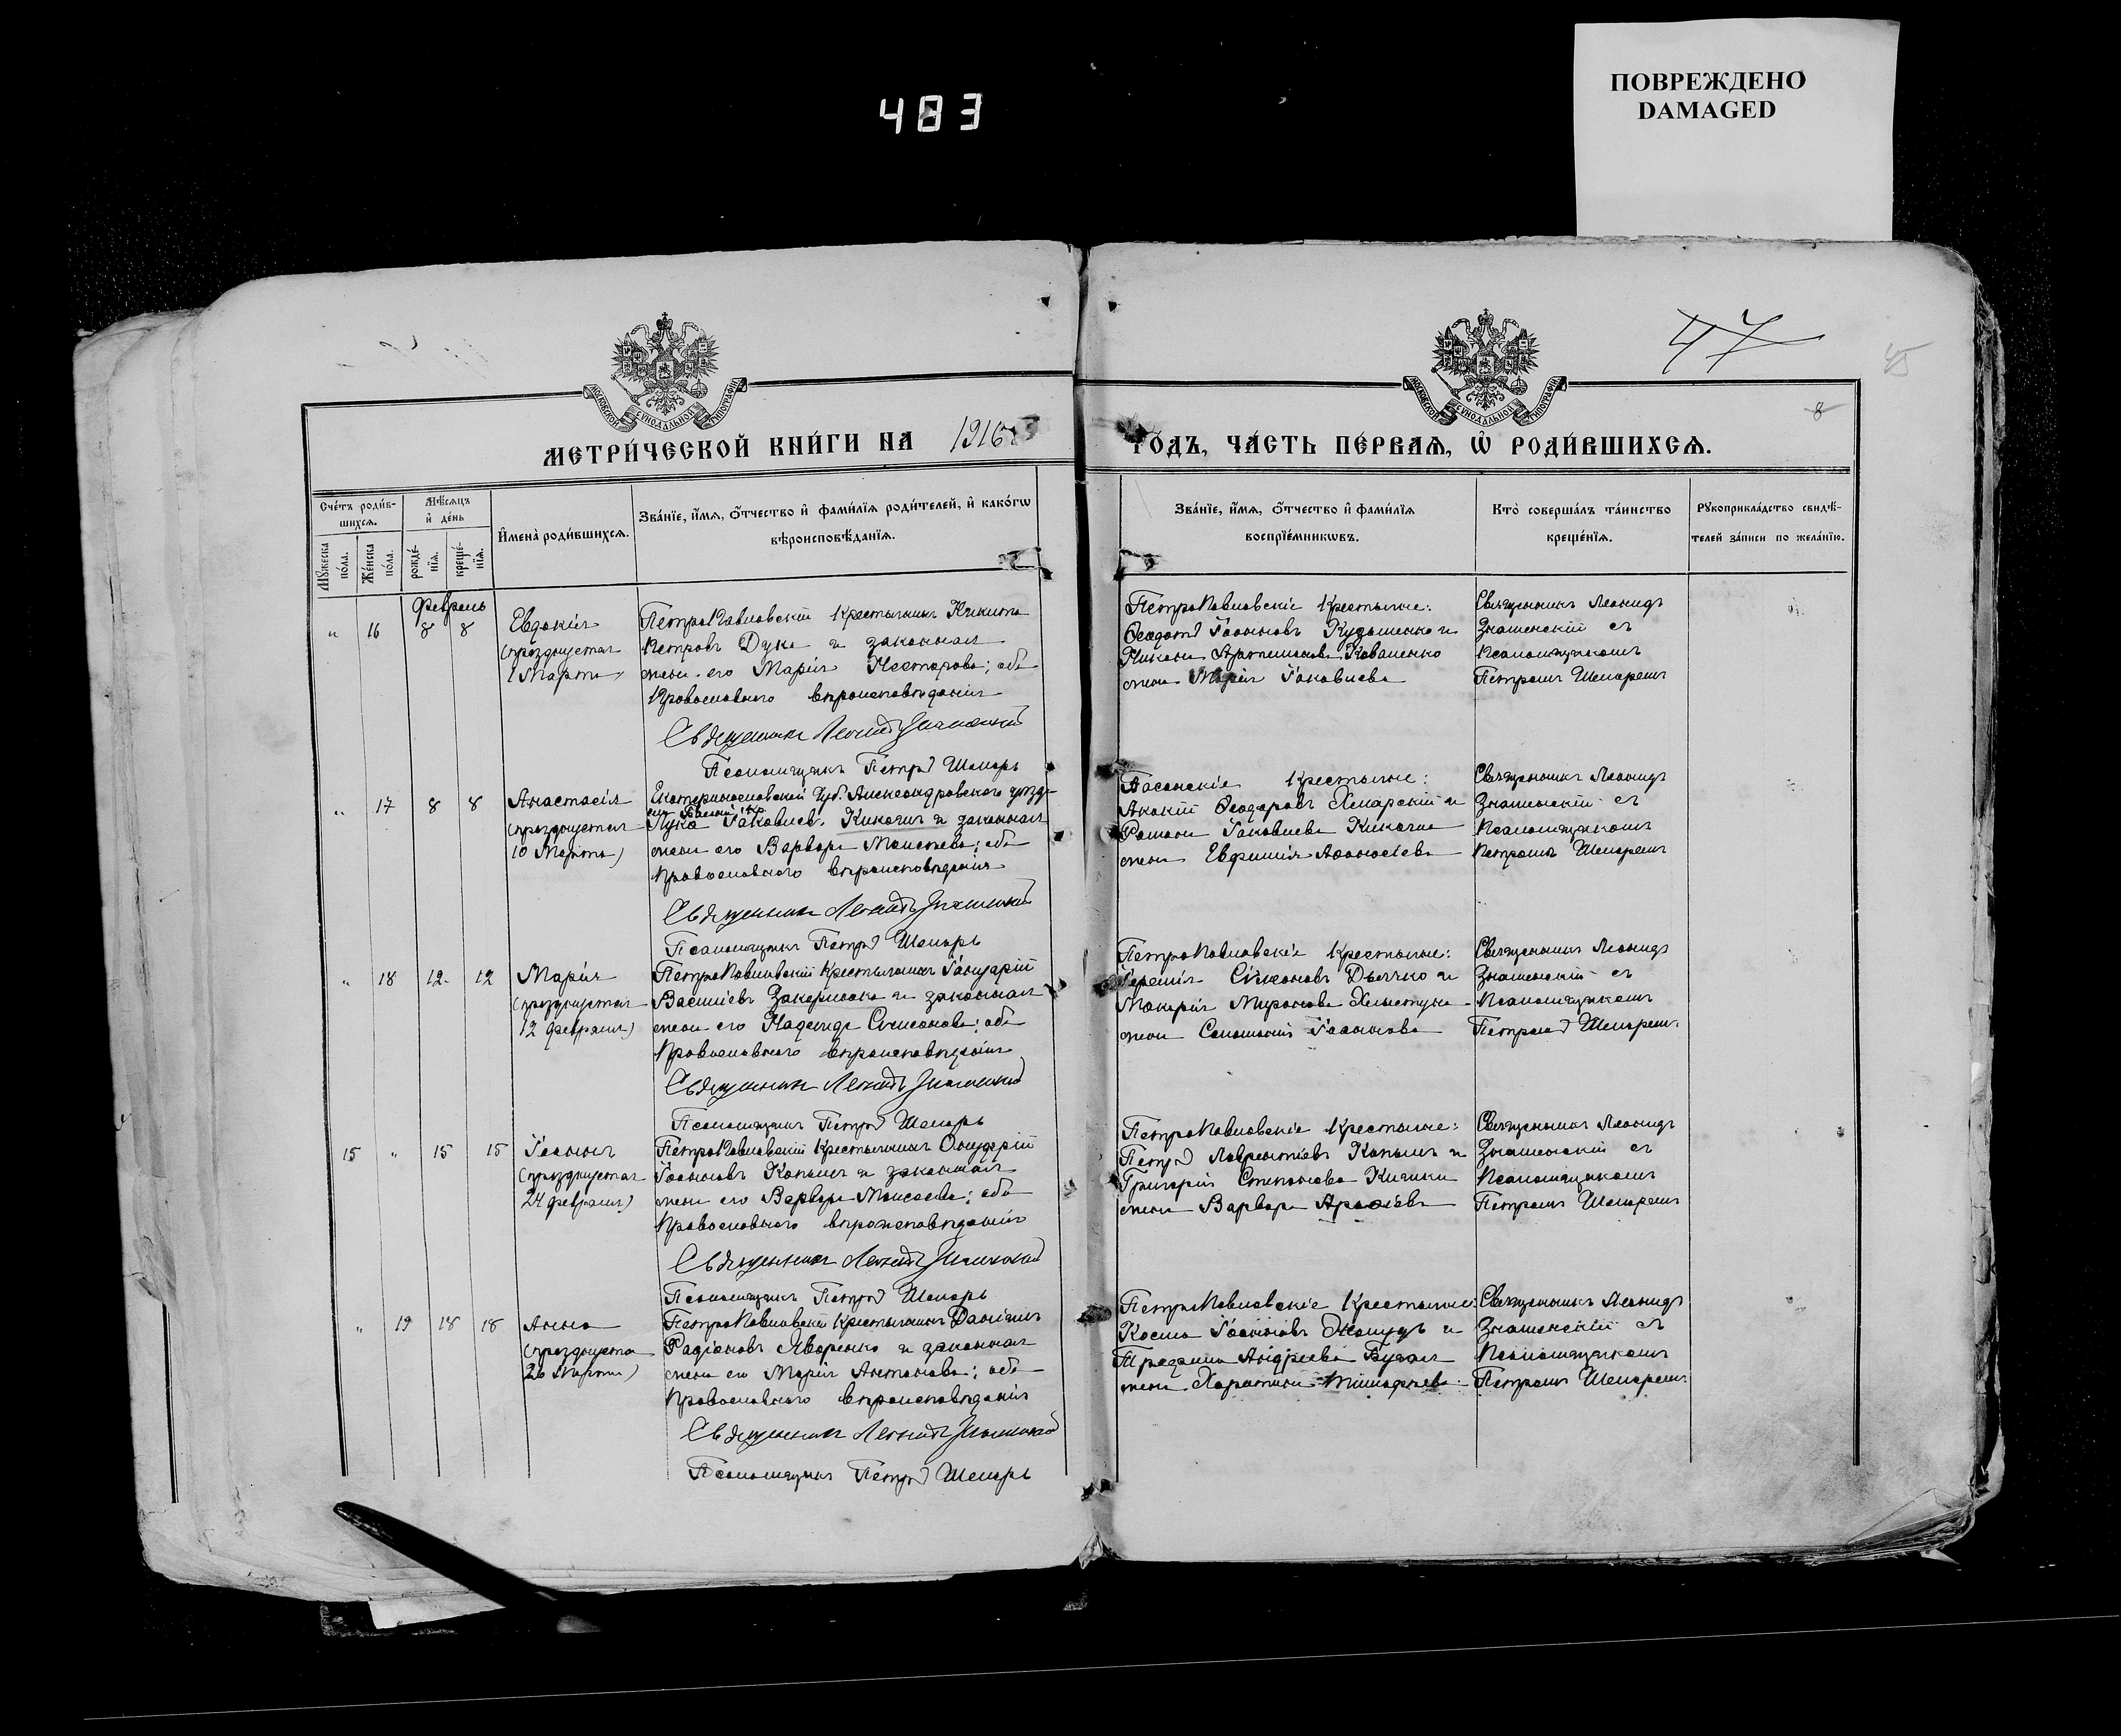 ПОВРЕЖДЕНО
DAMAGED
483
47
45
8
МОСКОВСКОЙ СУНОДАЛЬНОЙ ТИПОГРАФІИ
МОСКОВСКОЙ СУНОДАЛЬНОЙ ТИПОГРАФІИ
МЕТРИ́ЧЕСКОЙ КНИ́ГИ НА 1916
ГО́ДЪ, ЧА́СТЬ ПЕ́РВАЯ, Ѡ РОДИ́ВШИХСЯ.
Сче́тъ роди́в-
шихся.
Мѣ́сяцъ
и де́нь
Мꙋжеска по́ла.
Же́нска по́ла.
рожде́нїя.
креще́нїя.
Имена̀ роди́вшихся.
Зва́нїе, и́мя, о́тчество и фами́лїя роди́телей, и како́гѡ
вѣроисповѣ́данїя.
Зва́нїе, и́мя, о́тчество и фами́лїя
воспрїе́мникѡвъ.
Кто̀ соверша́лъ та́инство
креще́нїя.
Рꙋкоприкла́дство свидѣ́-
телей за́писи по жела́нїю.
Февраль
" 16 8 8
Евдокія
(празднуетъся
1 Марта)
ПетроПавловскій крестьянинъ Никита
Петровъ Дука и законная
жена его Марія Несторова; оба
Православнаго вѣроисповѣданія
Священникъ Леонидъ Знаменскій
Псаломщикъ Петръ Шепарь
ПетроПавловскіе крестьяне:
Ѳеодотъ Іоанновъ Кузьменко и
Коваленко
жена Марія Іаковлева
Священникъ Леонидъ
Знаменскій съ
Псаломщикомъ
Петромъ Шепаремъ
" 17 8 8
Анастасія
(празднуетъся
10 Марта)
Екатеринославской Губ. Александровскаго уѣзда
Лука Іаковлевъ Кикотъ и законная
жена его Варвара Моисеева; оба
Православнаго вѣроисповѣданія
Священникъ Леонидъ Знаменскій
Псаломщикъ Петръ Шепарь
крестьяне:
Акакій Ѳеодоровъ и
Романа Іаковлева
жена Евфимія Аѳанасіева
Священникъ Леонидъ
Знаменскій съ
Псаломщикомъ
Петромъ Шепаремъ
" 18 12 12
Марія
(празднуетъся
12 февраля)
ПетроПавловскій крестьянинъ Іануарій
Василіевъ и законная
жена его Надежда Симеонова; оба
Православнаго вѣроисповѣданія
Священникъ Леонидъ Знаменскій
Псаломщикъ Петръ Шепарь
ПетроПавловскіе крестьяне:
Іеремія Симеоновъ Дьячко и
Макарія Миронова
жена Соломонія Іоаннова
Священникъ Леонидъ
Знаменскій съ
Псаломщикомъ
Петромъ Шепаремъ
15 " 15 15
Іоаннъ
(празднуетъся
24 февраля)
ПетроПавловскій крестьянинъ Онуфрій
Іоанновъ Копылъ и законная
жена его Варвара Моисеева; оба
Православнаго вѣроисповѣданія
Священникъ Леонидъ Знаменскій
Псаломщикъ Петръ Шепарь
ПетроПавловскіе крестьяне:
Петръ Лаврентіевъ Копылъ и
Григорія Степанова
жена Варвара
Священникъ Леонидъ
Знаменскій съ
Псаломщикомъ
Петромъ Шепаремъ
" 19 18 18
Анна
(празднуетъся
26 Марта)
ПетроПавловскій крестьянинъ Даніилъ
Радіоновъ Яворенко и законная
жена его Марія Антонова; оба
Православнаго вѣроисповѣданія
Священникъ Леонидъ Знаменскій
Псаломщикъ Петръ Шепарь
ПетроПавловскіе крестьяне:
Косма Іоанновъ и
Андреева
жена Харитина Тимофеева
Священникъ Леонидъ
Знаменскій съ
Псаломщикомъ
Петромъ Шепаремъ